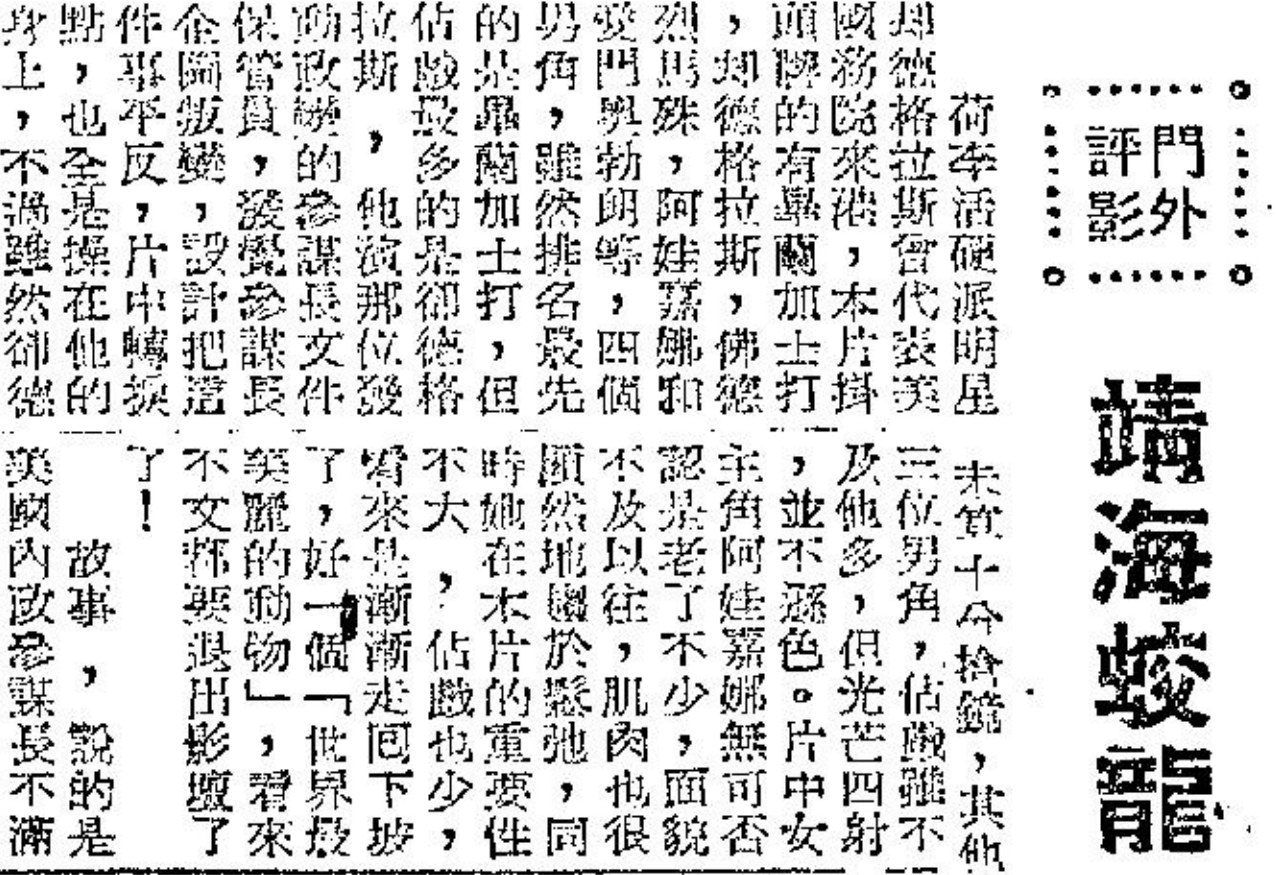 門外
評影
靖海蛟龍
荷李活硬派明星
却德格拉斯曾代表美
國務院來港，本片掛
頭牌的有畢蘭加士打
，却德格拉斯，佛德
烈馬殊，阿娃嘉娜和
愛門奧勃朗等，四個
男角，雖然排名最先
的是畢蘭加士打，但
佔戲最多的是卻德格
拉斯，他演那位發
動政變的參謀長文件
保管員，發覺參謀長
企圖叛變，設計把這
件事平反，片中轉捩
點，也全是操在他的
身上，不過雖然卻德
未算十分搶鏡，其他
三位男角，佔戲雖不
及他多，但光芒四射
，並不遜色。片中女
主角阿娃嘉娜無可否
認是老了不少，面貌
不及以往，肌肉也很
顯然地趨於鬆弛，同
時她在本片的重要性
不大，佔戲也少，
看來是漸漸走回下坡
了，好一個「世界最
美麗的動物」，看來
不文都要退出影壇了
了！
故事，說的是
美國內政參謀長不滿